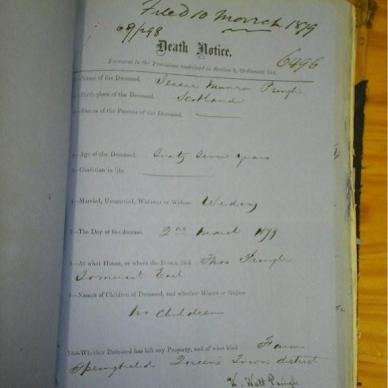 Filed 10 March 1879
6496
Death Notice.
Pursuant to the Provisions contained in Section
Name of the Deceased. Jessie Munro Pringle
Birth-place of the Deceased. Scotland
Names of the Parents of the Deceased.
Age of the Deceased. Sixty Seven years
Condition in life
Married, Unmarried, Widower or Widow Widow
The Day of the decease. 2nd March 1879
At what House, or where the Person died Thos Pringle
Somerset East
Names of Children of Deceased, and whether Majors or Minors
No Children
Whether Deceased has left any Property, and of what kind Farm
Springfield Queens Town district
Watt Pringle